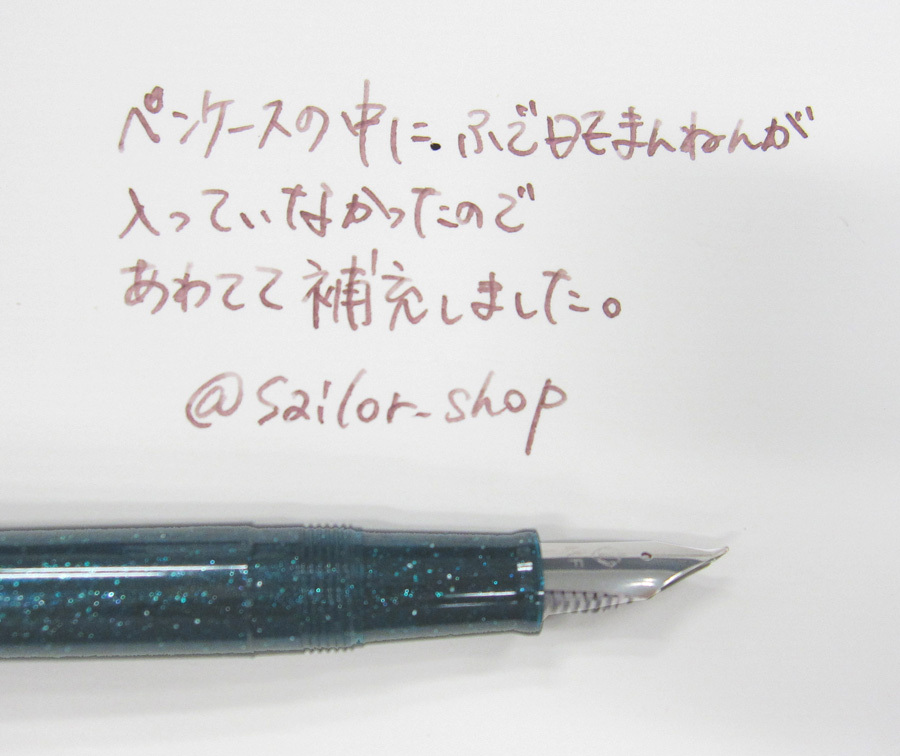 ペンケースの中に、ふでDEまんねんが
入っていなかったので
あわてて補充しました。
@sailor_shop
F